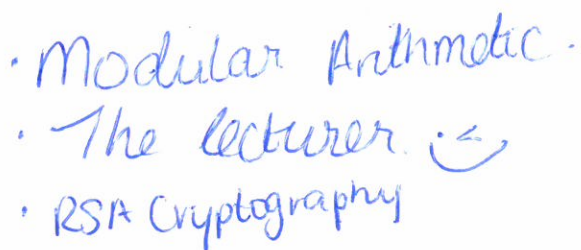 · Modular Arithmetic.
· The lecturer. ·<)
· RSA Cryptography